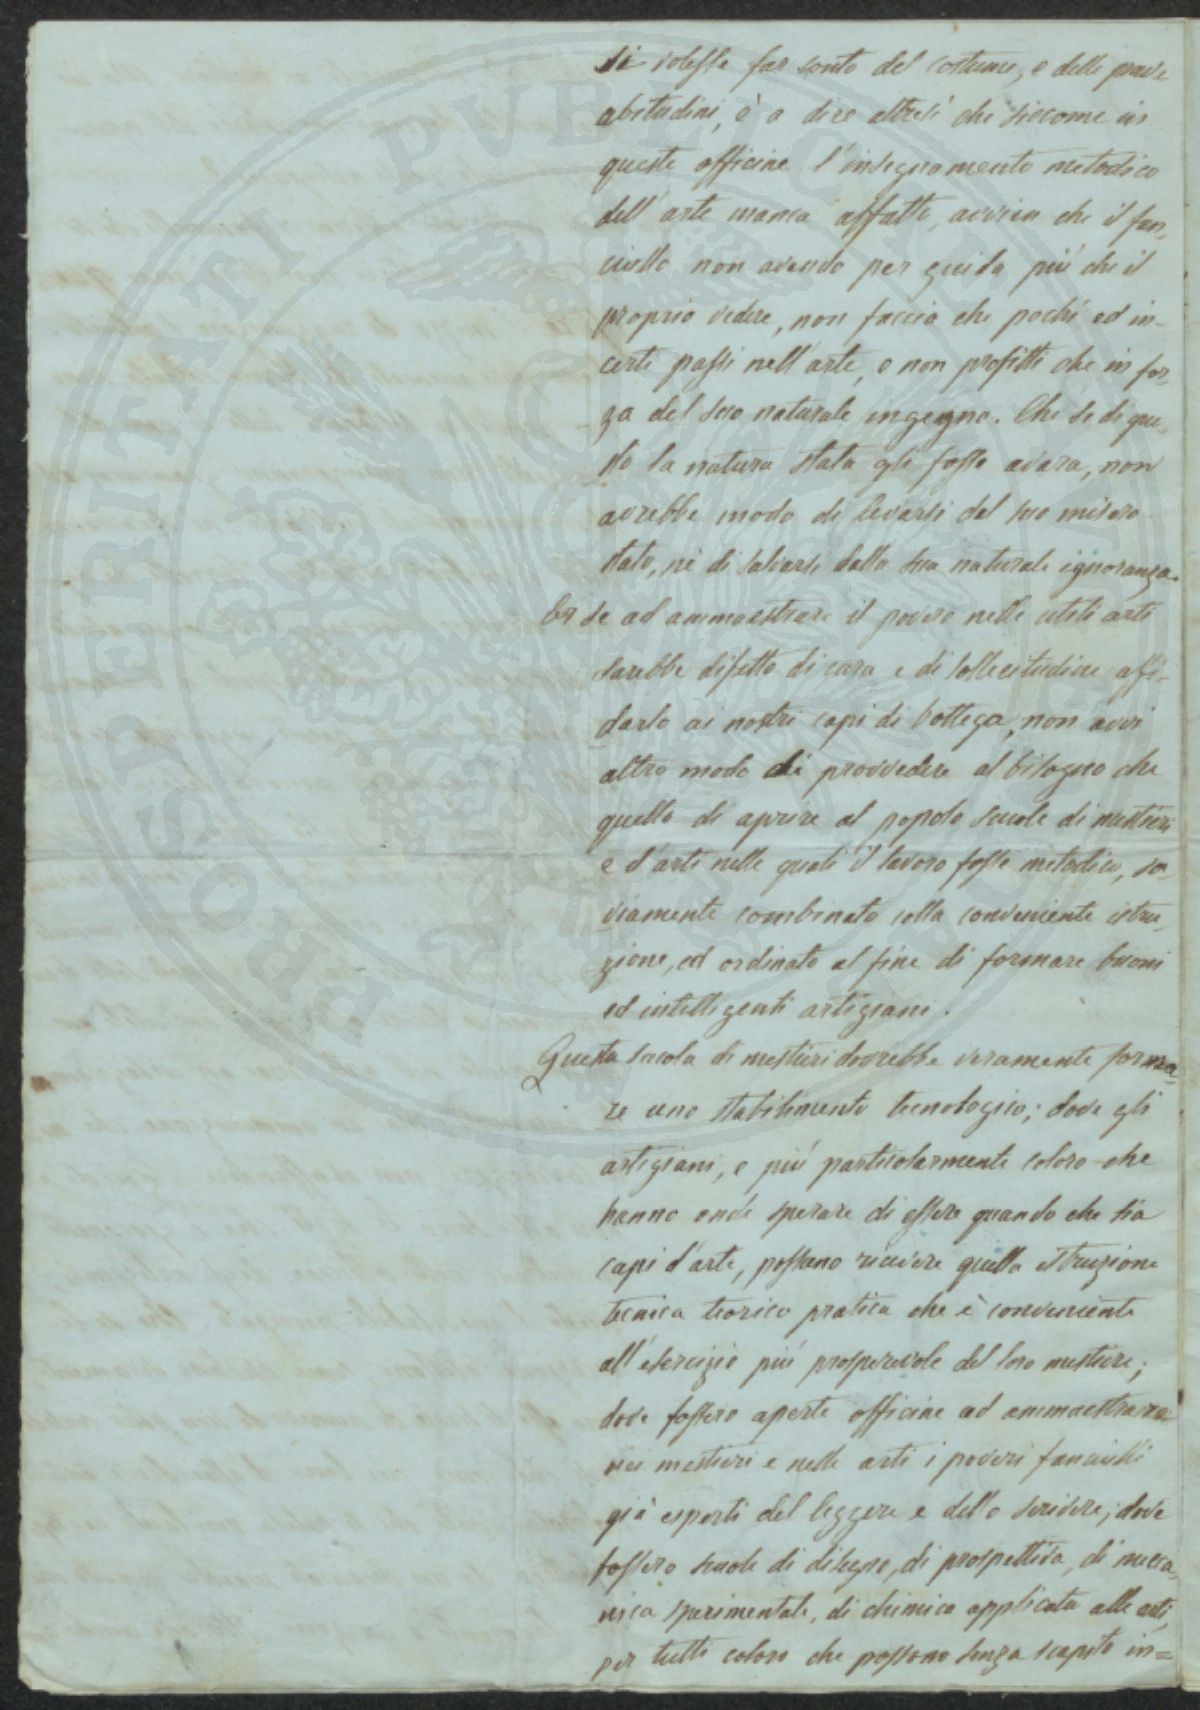 si volesse far conto del costume, e delle prave
abitudini, è a dire altresì che siccome in
queste officine l'insegnamento metodico
dell'arte manca affatto, avvien che il fan-
ciullo non avendo per guida più che il
proprio vedere, non faccia che pochi ed in-
certi passi nell'arte, e non profitti che in for-
za del suo naturale ingegno. Chè se di que-
sto la natura stata gli fosse avara, non
avrebbe modo di levarsi dal suo misero
stato, nè di salvarsi dalla sua naturale ignoranza.
Or se ad ammaestrare il povero nelle utili arti
sarebbe difetto di cura e di sollecitudine affi-
darlo ai nostri capi di bottega, non avvi
altro modo di provvedere al bisogno che
quello di aprire al popolo scuole di mestieri
e d'arti nelle quali il lavoro fosse metodico, sa-
viamente combinato colla conveniente istru-
zione, ed ordinato al fine di formare buoni
ed intelligenti artigiani.
Questa scuola di mestieri dovrebbe veramente forma-
re uno stabilimento tecnologico; dove gli
artigiani, e più particolarmente coloro che
hanno onde sperare di essere quando che sia
capi d'arte, possano ricevere quella istruzione
tecnica teorico pratica che è conveniente
all'esercizio più prosperevole del loro mestiere;
dove fossero aperte officine ad ammaestrare
nei mestieri e nelle arti i poveri fanciulli
già esperti del leggere e dello scrivere; dove
fossero scuole di disegno, di prospettiva, di mecca-
nica sperimentale, di chimica applicata alle arti,
per tutti coloro che possono senza scapito in=
PROSPERITATI PUBLICAE